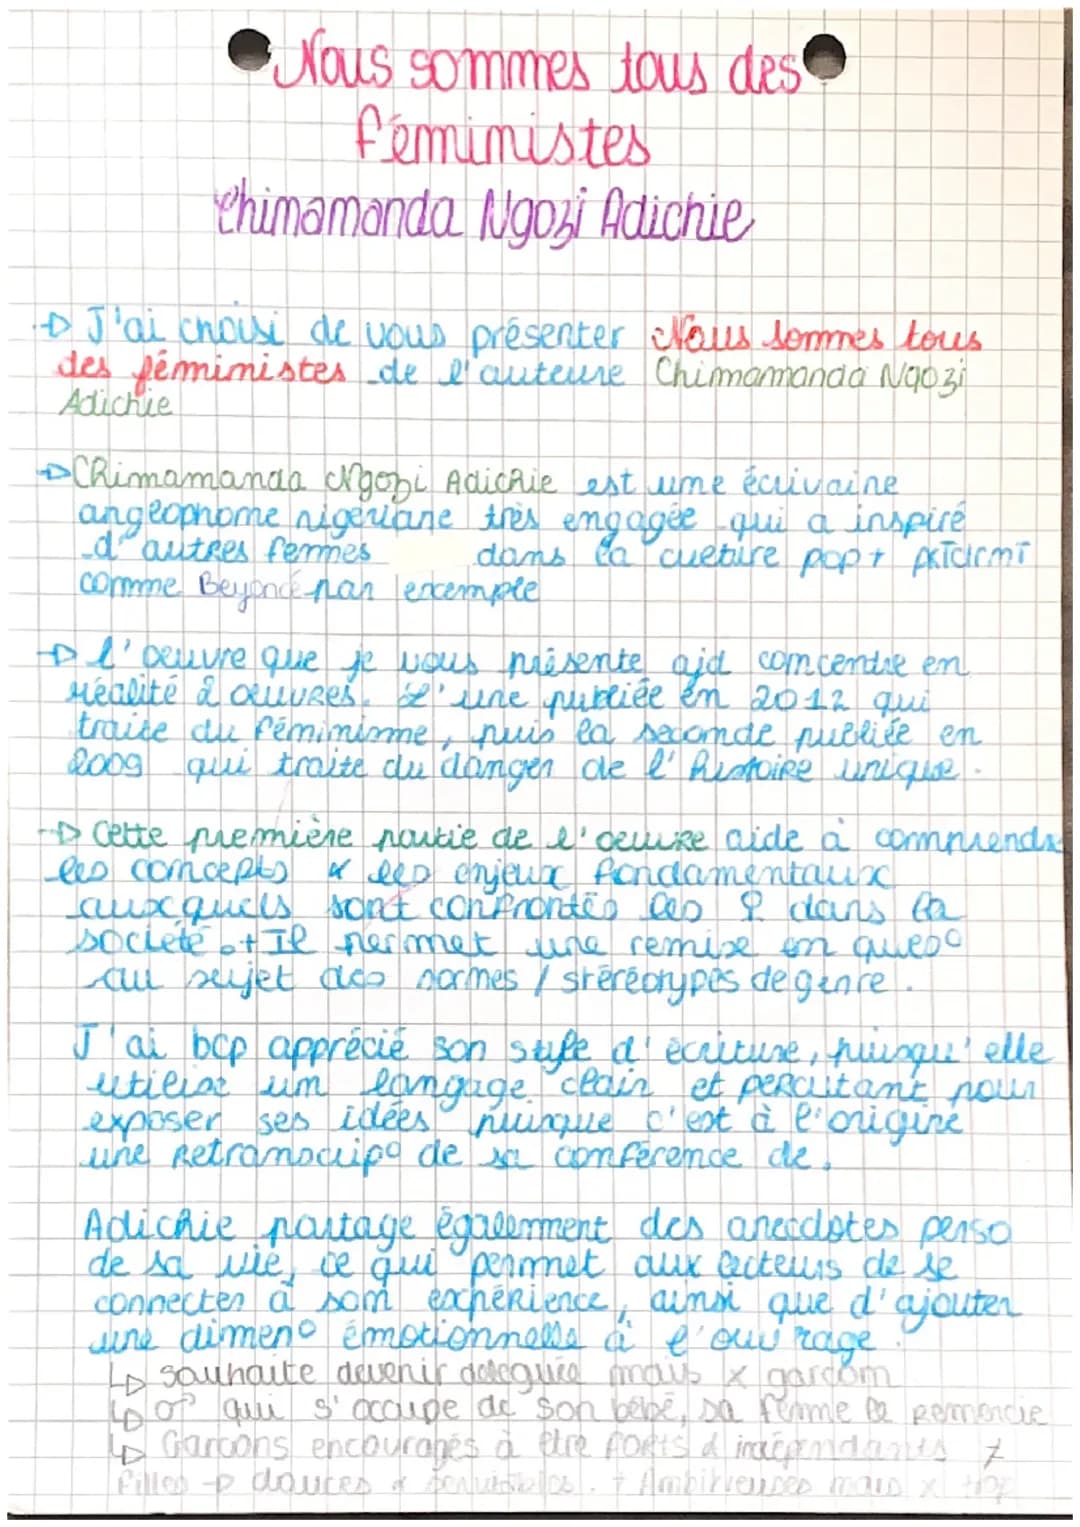 Nous sommes tous des
féministes
Chimamanda Ngozi Adichie
→ J'ai choisi de vous présenter Nous sommes tous
des féministes de l'auteure Chimamanda Ngozi
Adichie
→ Chimamanda Ngozi Adichie est une écrivaine
anglophone nigériane très engagée qui a inspiré
d'autres femmes dans la culture pop +
comme Beyoncé par exemple
→ L'oeuvre que je vous présente ajd concentre en
réalité 2 œuvres. L'une publiée en 2012 qui
traite du féminisme, puis la seconde publiée en
2009 qui traite du danger de l'histoire unique.
→ Cette première partie de l'oeuvre aide à comprendre
les concepts & les enjeux fondamentaux
auxquels sont confrontés les ♀ dans la
société. + Il permet une remise en ques°
au sujet des normes / stéréotypes de genre.
J'ai bcp apprécié son style d'écriture, puisqu'elle
utilise un langage clair et percutant pour
exposer ses idées puisque c'est à l'origine
une retranscrip° de sa conférence de.
Adichie partage également des anecdotes perso
de sa vie, ce qui permet aux lecteurs de se
connecter à son expérience, ainsi que d'ajouter
une dimen° émotionnelle à l'ouvrage.
↳ souhaite devenir déléguée mais x garçom
↳ ♂ qui s'occupe de son bébé, sa femme le remercie
↳ Garcons encouragés à être forts & indépendants ≠
filles → douces & sensibles. + Ambitieuses mais x trop